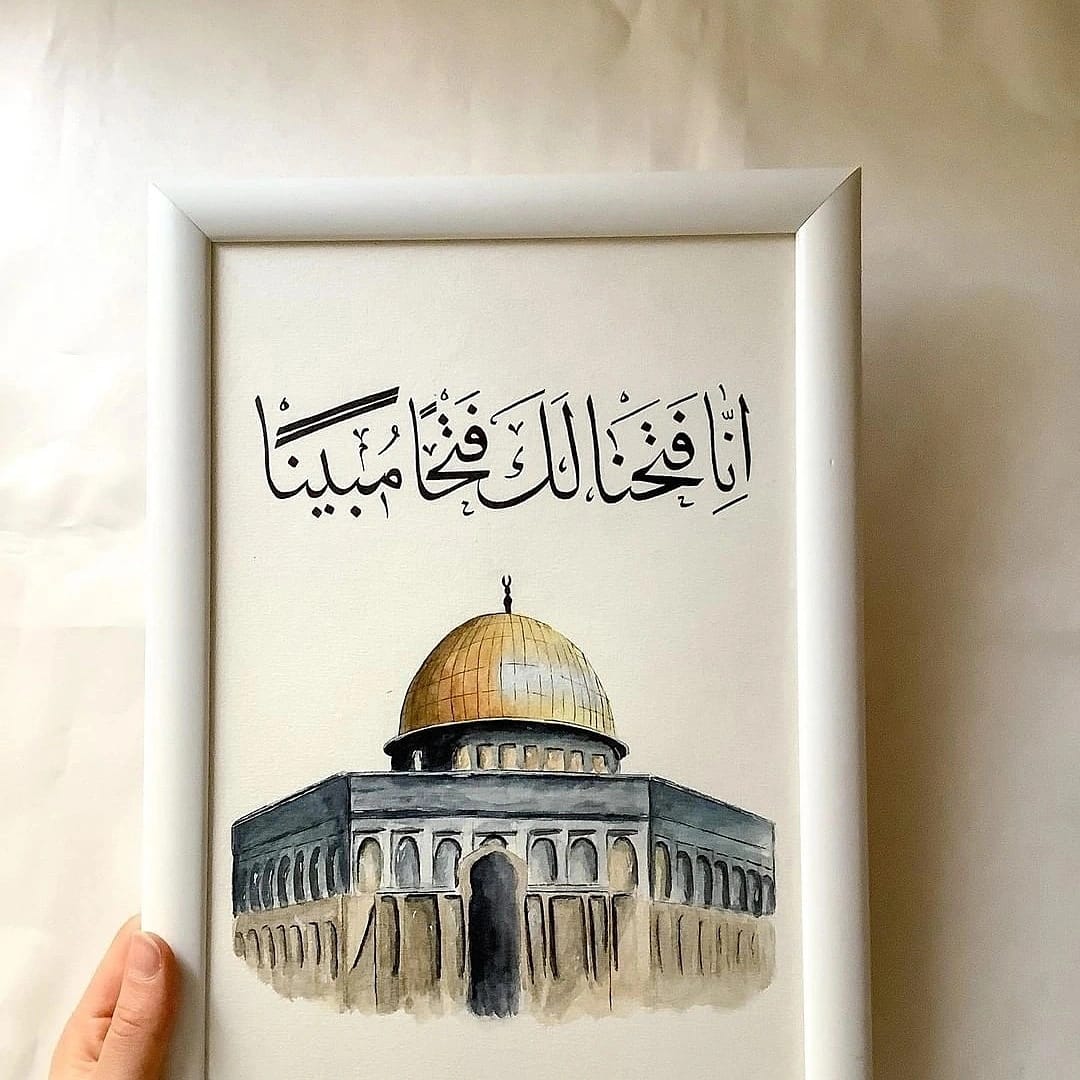 اِنَّا فَتَحْنَا لَكَ فَتْحًا مُبينًا